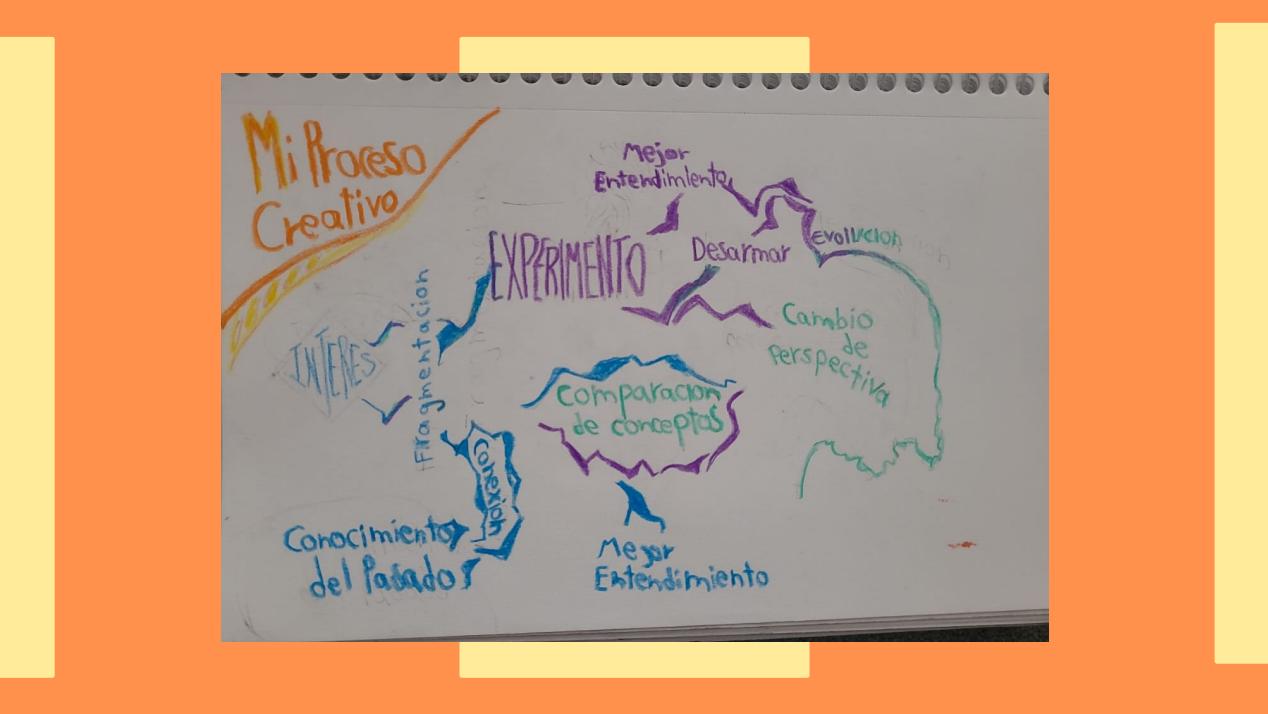 Mi Proceso
Creativo
Mejor
Entendimiento
EXPERIMENTO
Desarmar
Evolucion
INTERES
Fragmentacion
Cambio
de
Perspectiva
Comparacion
de conceptos
Conexión
Conocimiento
del Pasado
Mejor
Entendimiento